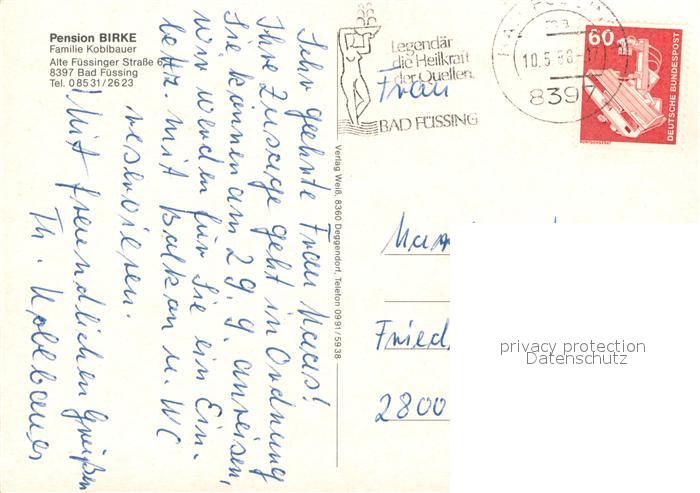 Pension BIRKE
Familie Koblbauer
Alte Füssinger Straße 6
8397 Bad Füssing
Tel. 08531/2623
Sehr geehrte Frau Maas!
Ihre Zusage geht in Ordnung
Sie können am 29.9. anreisen,
wir werden für Sie ein Ein-
bettz. mit Balkon u. WC
reservieren.
Mit freundlichen Grüßen
Th. Koblbauer
Verlag Weiß, 8360 Deggendorf, Telefon 0991/5938
Legendär
die Heilkraft
der Quellen.
BAD FÜSSING
8397
60
DEUTSCHE BUNDESPOST
Frau
Fried
2800
privacy protection
Datenschutz